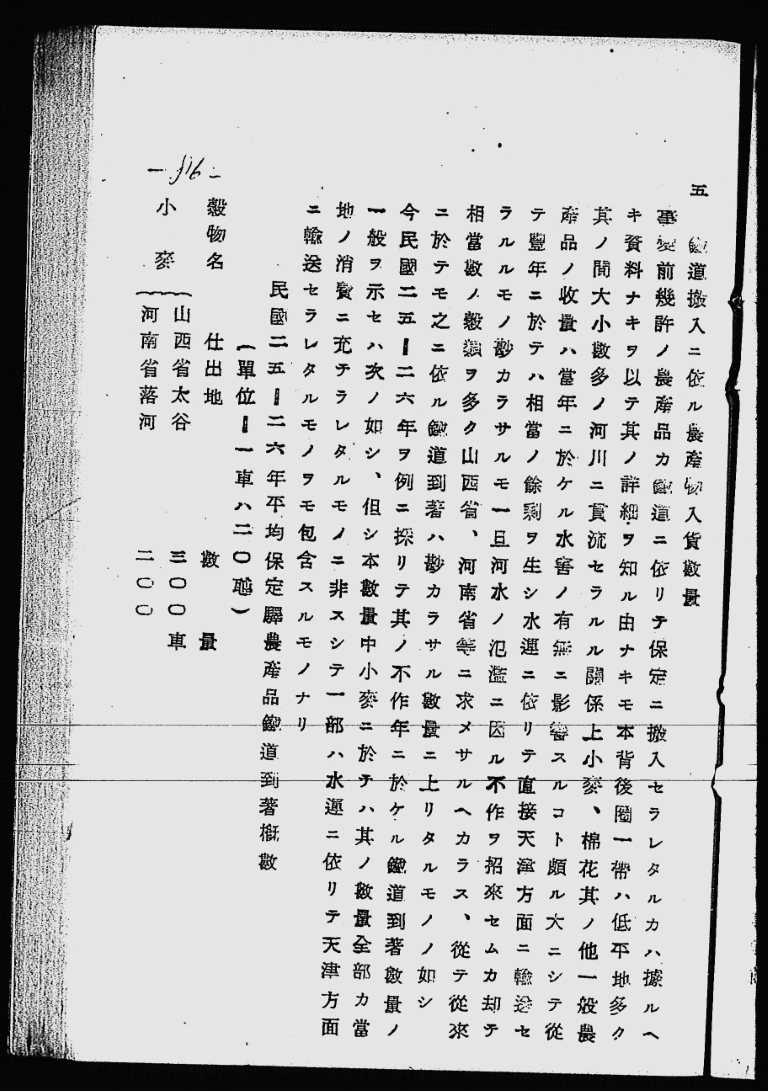 五 鐵道搬入ニ依ル農産物入貨數量
事變前幾許ノ農産品カ鐵道ニ依リテ保定ニ搬入セラレタルカハ據ルヘ
キ資料ナキヲ以テ其ノ詳細ヲ知ル由ナキモ本背後圈一帶ハ低平地多ク
其ノ間大小數多ノ河川ニ貫流セラルル關係上小麥、棉花其ノ他一般農
產品ノ收量ハ當年ニ於ケル水害ノ有無ニ影響スルコト頗ル大ニシテ從
テ豐年ニ於テハ相當ノ餘剩ヲ生シ水運ニ依リテ直接天津方面ニ輸送セ
ラルルモノ尠カラサルモ一旦河水ノ氾濫ニ因ル不作ヲ招來セムカ却テ
相當數ノ穀類ヲ多ク山西省、河南省等ニ求メサルヘカラス、從テ從來
ニ於テモ之ニ依ル鐵道到著ハ尠カラサル數量ニ上リタルモノノ如シ
今民國二五ー二六年ヲ例ニ採リテ其ノ不作年ニ於ケル鐵道到著數量ノ
一般ヲ示セハ次ノ如シ、但シ本數量中小麥ニ於テハ其ノ數量全部カ當
地ノ消費ニ充テラレタルモノニ非スシテ一部ハ水運ニ依リテ天津方面
ニ輸送セラレタルモノヲモ包含スルモノナリ
民國二五ー二六年平均保定驛農產品鐵道到著概數
(單位ー一車ハ二〇瓲)
穀物名 仕出地 數量
小麥 山西省太谷 三〇〇車
河南省落河 二〇〇